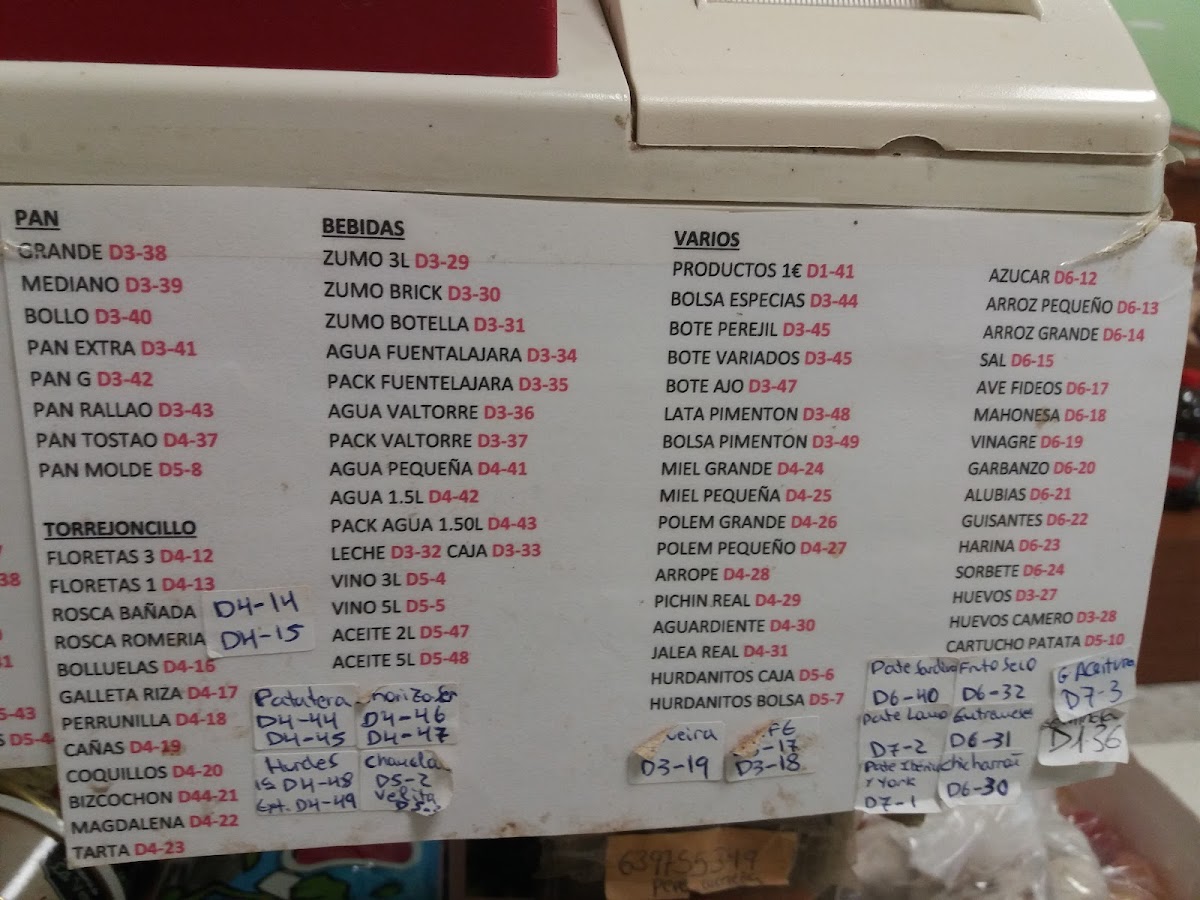 PAN
GRANDE D3-38
MEDIANO D3-39
BOLLO D3-40
PAN EXTRA D3-41
PAN G D3-42
PAN RALLAO D3-43
PAN TOSTAO D4-37
PAN MOLDE D5-8
TORREJONCILLO
FLORETAS 3 D4-12
FLORETAS 1 D4-13
ROSCA BAÑADA D4-14
ROSCA ROMERIA D4-15
BOLLUELAS D4-16
GALLETA RIZA D4-17
PERRUNILLA D4-18
CAÑAS D4-19
COQUILLOS D4-20
BIZCOCHON D44-21
MAGDALENA D4-22
TARTA D4-23
Patatera
D4-44
D4-45
D4-46
D4-47
Hurdes
D4-48
D4-49
D5-2
BEBIDAS
ZUMO 3L D3-29
ZUMO BRICK D3-30
ZUMO BOTELLA D3-31
AGUA FUENTALAJARA D3-34
PACK FUENTELAJARA D3-35
AGUA VALTORRE D3-36
PACK VALTORRE D3-37
AGUA PEQUEÑA D4-41
AGUA 1.5L D4-42
PACK AGUA 1.50L D4-43
LECHE D3-32 CAJA D3-33
VINO 3L D5-4
VINO 5L D5-5
ACEITE 2L D5-47
ACEITE 5L D5-48
VARIOS
PRODUCTOS 1€ D1-41
BOLSA ESPECIAS D3-44
BOTE PEREJIL D3-45
BOTE VARIADOS D3-45
BOTE AJO D3-47
LATA PIMENTON D3-48
BOLSA PIMENTON D3-49
MIEL GRANDE D4-24
MIEL PEQUEÑA D4-25
POLEM GRANDE D4-26
POLEM PEQUEÑO D4-27
ARROPE D4-28
PICHIN REAL D4-29
AGUARDIENTE D4-30
JALEA REAL D4-31
HURDANITOS CAJA D5-6
HURDANITOS BOLSA D5-7
D3-19
D3-18
AZUCAR D6-12
ARROZ PEQUEÑO D6-13
ARROZ GRANDE D6-14
SAL D6-15
AVE FIDEOS D6-17
MAHONESA D6-18
VINAGRE D6-19
GARBANZO D6-20
ALUBIAS D6-21
GUISANTES D6-22
HARINA D6-23
SORBETE D6-24
HUEVOS D3-27
HUEVOS CAMERO D3-28
CARTUCHO PATATA D5-10
Pate Sardina
D6-40
Fruto Seco
D6-32
G Aceituna
D7-3
D7-2
D6-31
D136
Y York
D7-1
D6-30
639755349